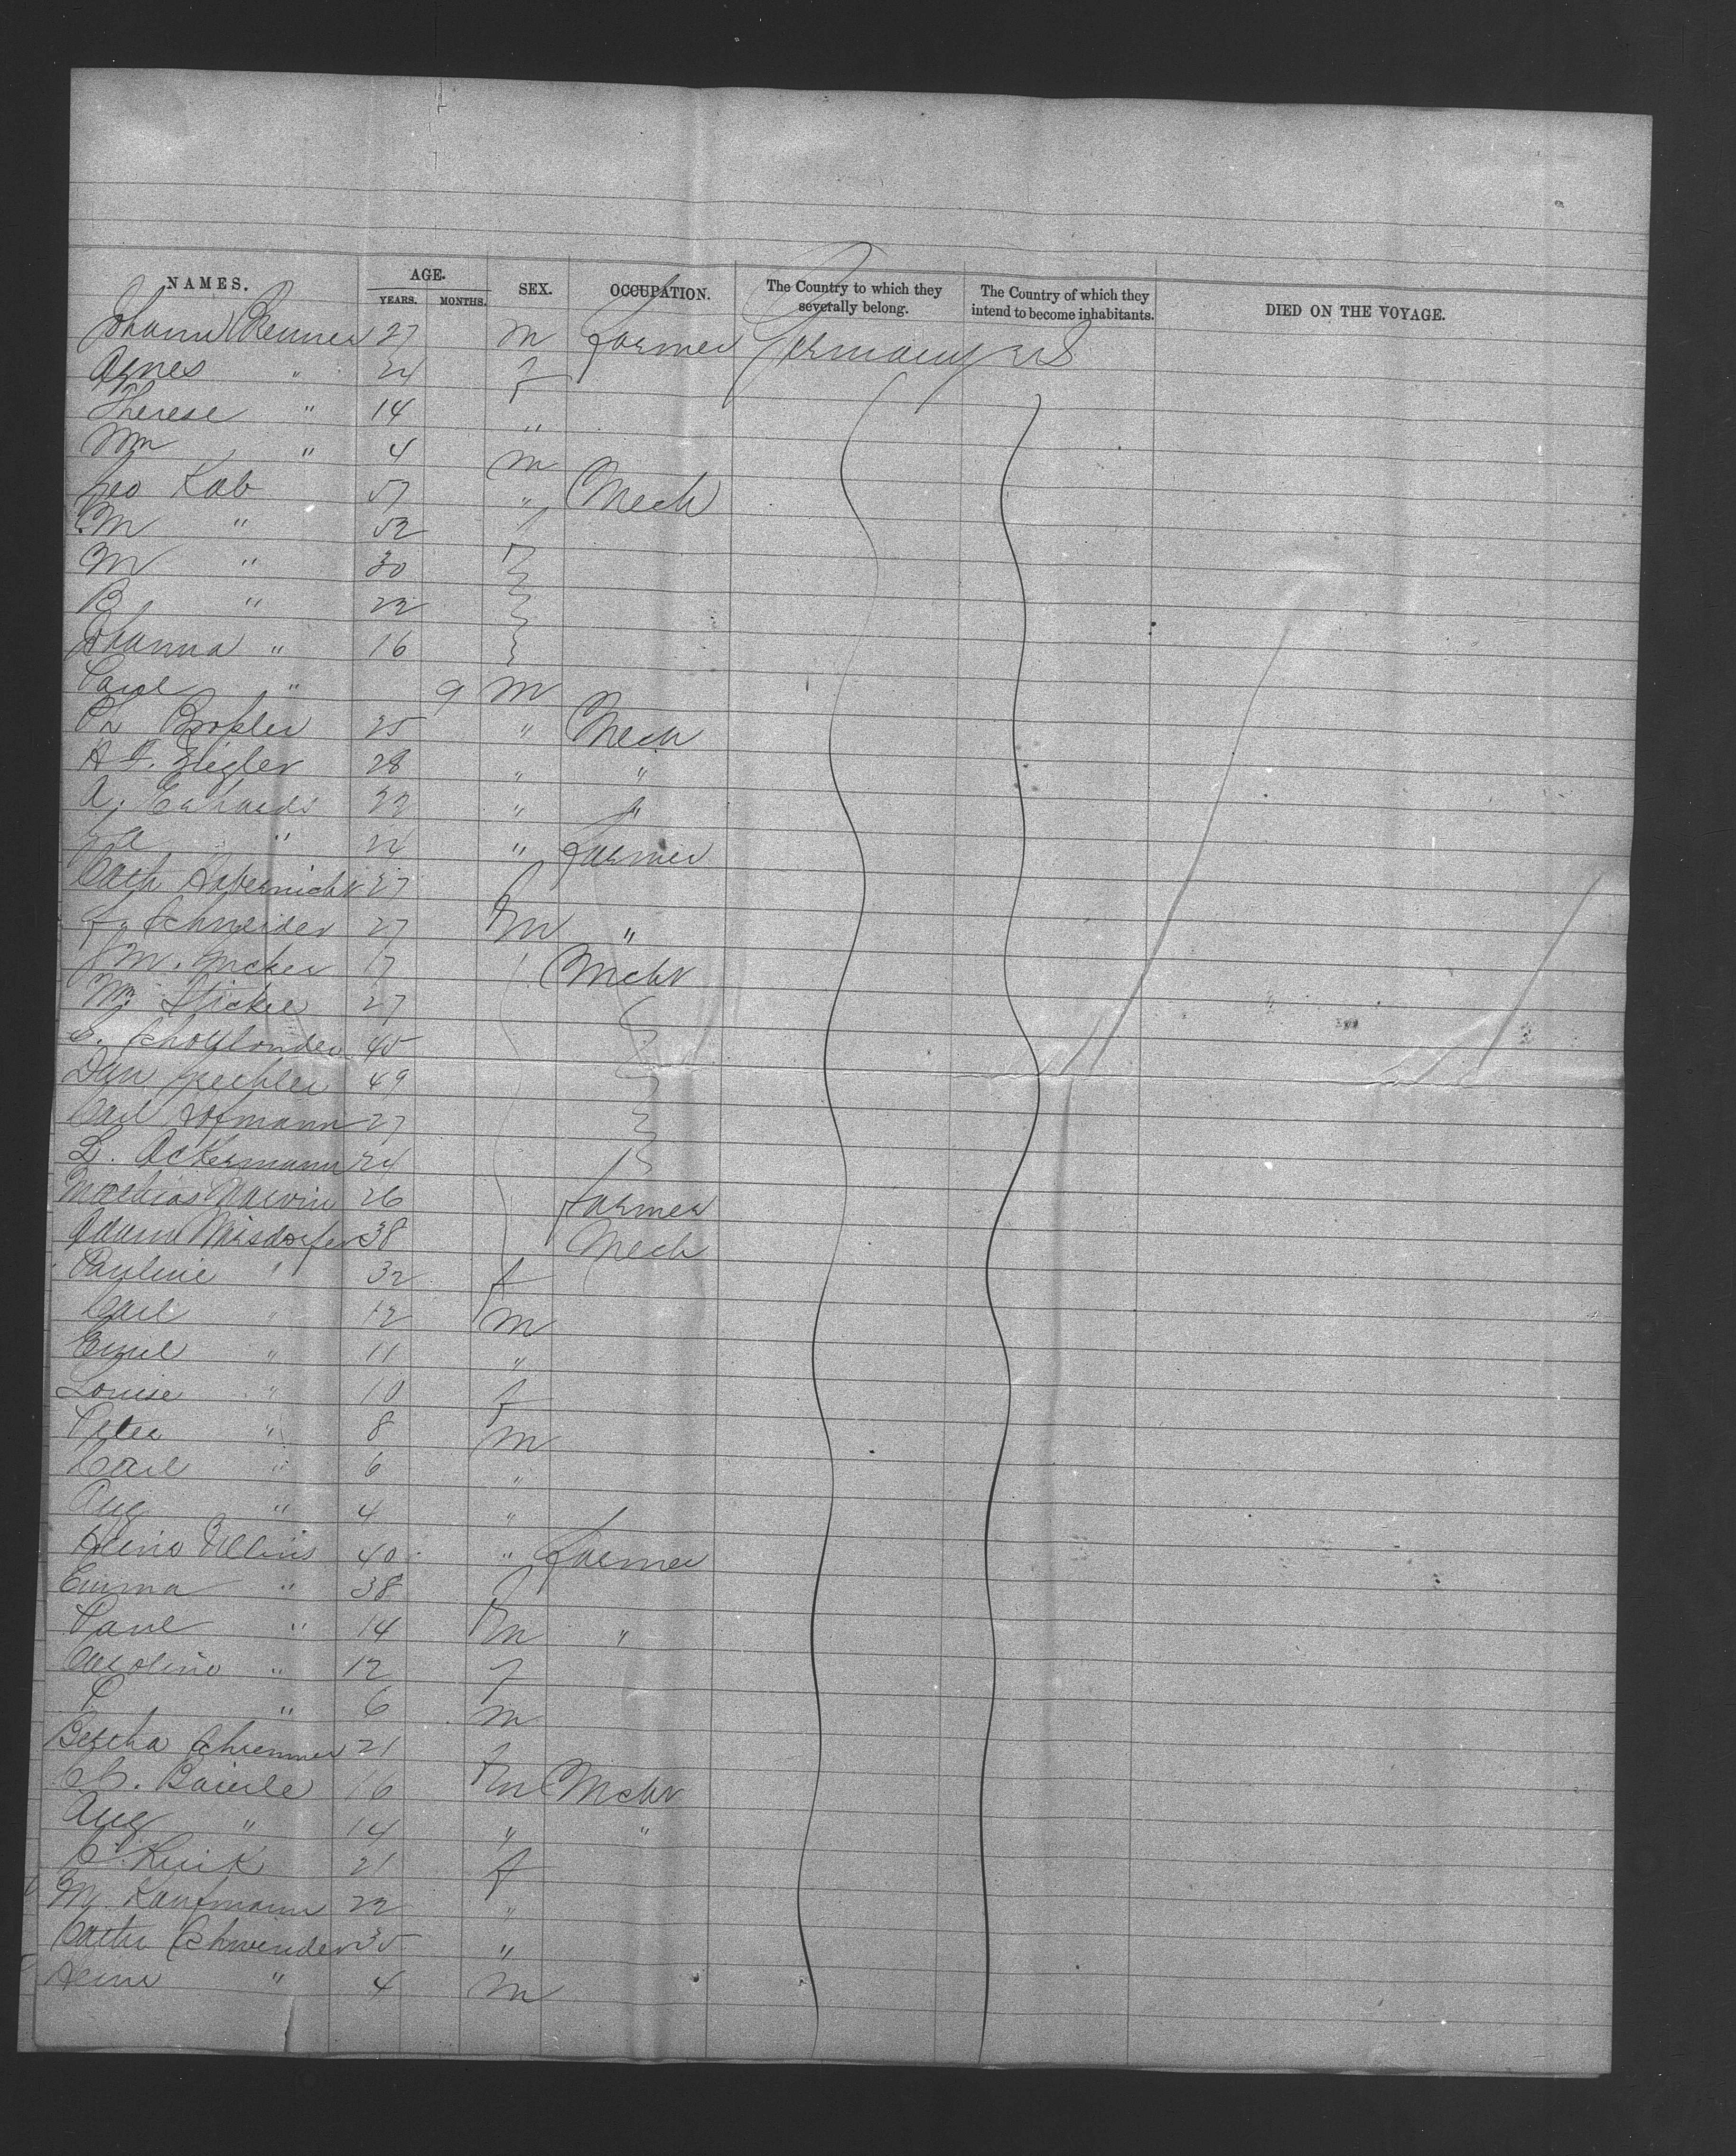 NAMES. AGE. YEARS. MONTHS. SEX. OCCUPATION. The Country to which they severally belong. The Country of which they intend to become inhabitants. DIED ON THE VOYAGE.
Johann Renner 27 m Farmer Germany US
Agnes " 24 f
Therese " 14 "
Wm " 4 m
Geo Kab 57 " Mech
M " 52 f
M " 30
B " 22
Johanna " 16
Paul " 9 m
25 " Mech
A F. Ziegler 28 " "
A. 22 " "
" 24 " Farmer
Cath Habernicht 27 f
F. Schneider 27 m "
17 Mchr
Wm Stickel 27
45
49
Carl Hofmann 27
L. Ackermann 24
Mathias 26 Farmer
Adam 38 Mech
Pauline " 32 f
Carl " 12 m
Emil " 11 "
Louise " 10 f
Peter " 8 m
Carl " 6 "
Aug " 4 "
40 " Farmer
Emma " 38 f
Paul " 14 m "
Caroline " 12 f
P " 6 m
Bertha 21 f
C. Baierle 16 m Mchr
Aug " 14 " "
21 f
M. Kaufmann 22 "
Cath Schwender 35 "
" 4 m